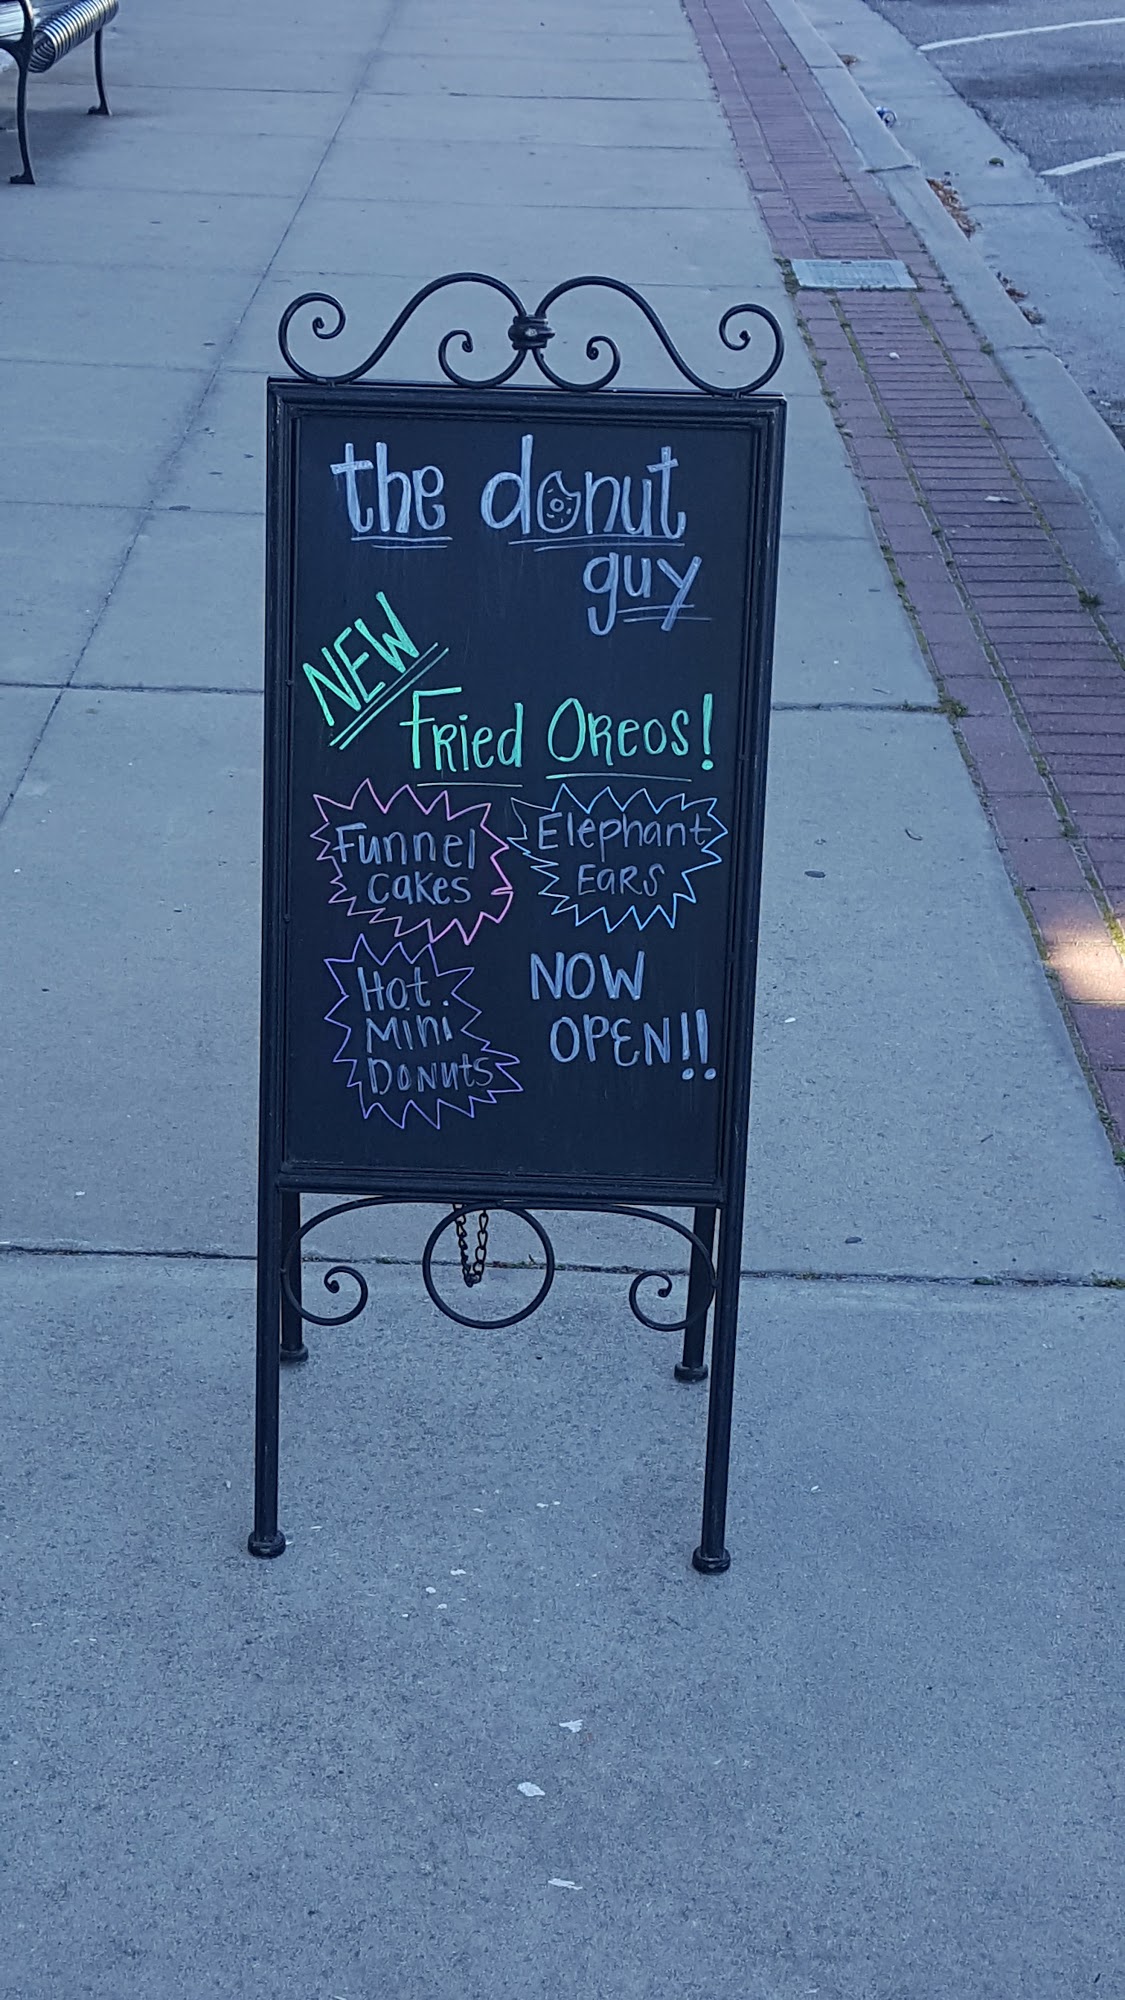 the donut
guy
NEW
Fried Oreos!
Funnel
Cakes
Elephant
Ears
Hot
Mini
Donuts
NOW
OPEN!!